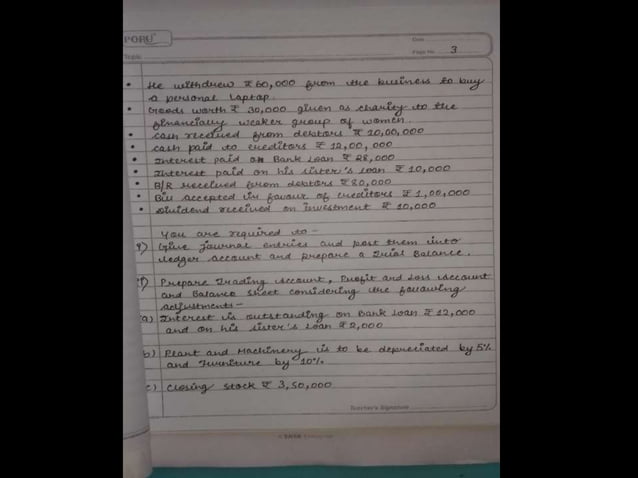 PORU
Date
Page No. 3
Topic
• He withdrew ₹60,000 from the business to buy
a personal laptop.
• Goods worth ₹ 30,000 given as charity to the
financially weaker group of women.
• cash received from debtors ₹ 10,00,000
• cash paid to creditors ₹ 12,00,000
• Interest paid on Bank Loan ₹ 28,000
• Interest paid on his sister's Loan ₹ 10,000
• B/R received from debtors ₹80,000
• Bill accepted in favour of creditors ₹ 1,00,000
• Dividend received on investment ₹ 10,000
You are required to -
Give journal entries and post them into
ledger account and prepare a Trial Balance.
Prepare Trading Account, Profit and Loss Account
and Balance Sheet considering the following
adjustments-
(a) Interest is outstanding on Bank Loan ₹ 12,000
and on his sister's Loan ₹ 2,000
b) Plant and Machinery is to be depreciated by 5%
and Furniture by 10%
c) Closing Stock ₹ 3,50,000
Teacher's Signature